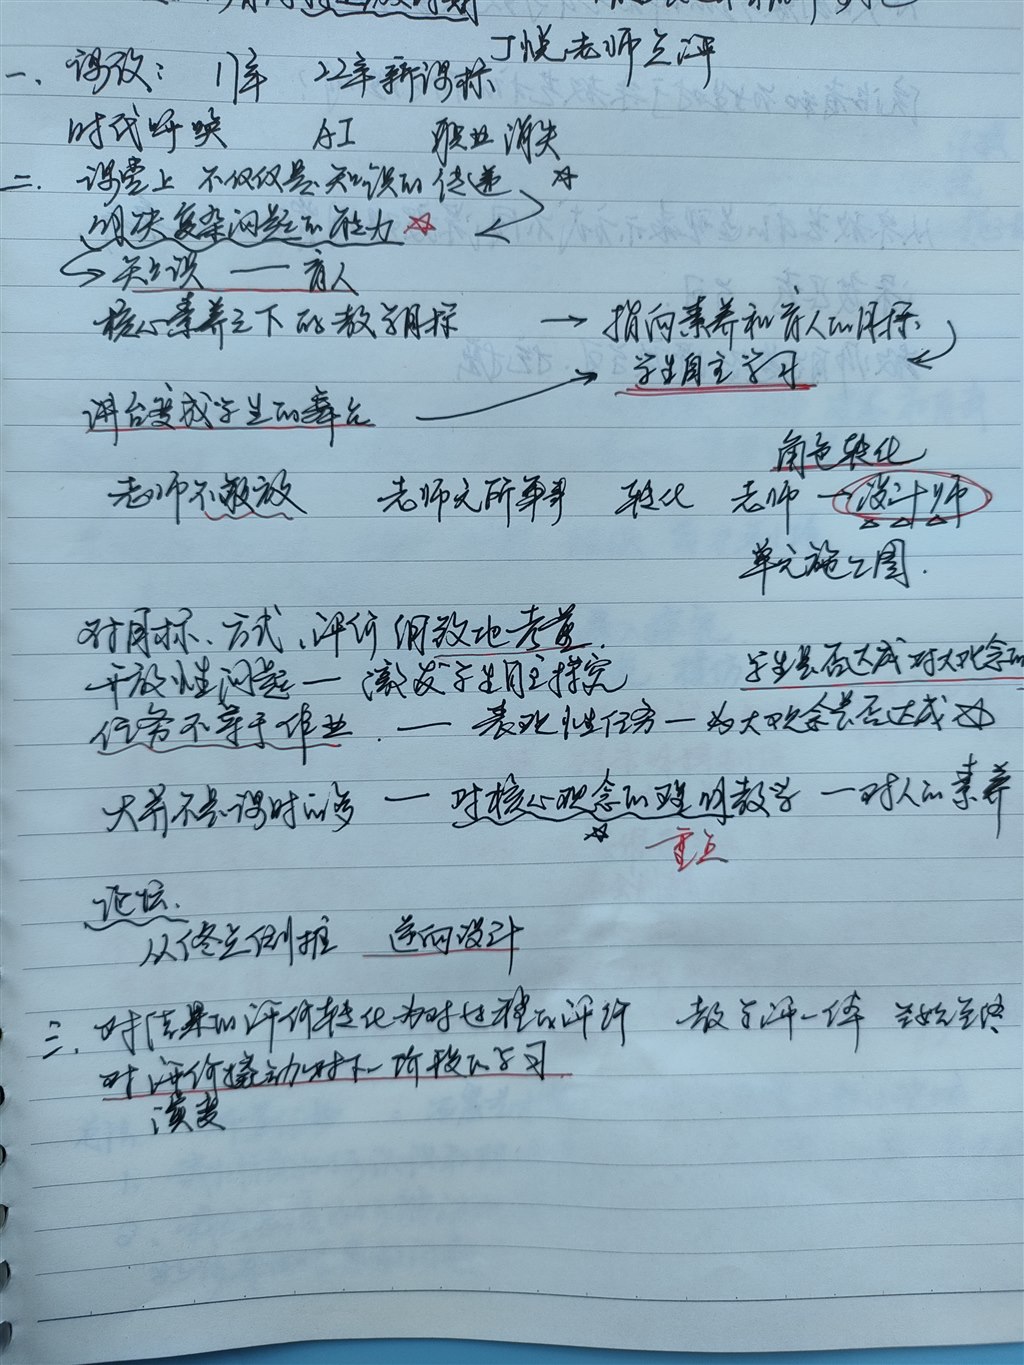 丁悦老师点评
一、课改： 11年 22年新课标
时代呼唤 AI 职业消失
二、课堂上 不仅仅是知识的传递 ☆
解决复杂问题的能力 ☆
→ 知识 —— 育人
核心素养之下的教学目标 → 指向素养和育人的目标
学生自主学习
讲台变成学生的舞台
角色转化
老师不敢放 老师无所事事 转化 老师 → 设计师
单元施工图.
对目标、方式、评价 细致地考量.
开放性问题 — 激发学生自主探究
学生是否达成对大观念的
任务不等于作业. — 表现性任务 — 为大观念是否达成
大并不是课时的多 — 对核心观念的理解教学 — 对人的素养
☆ 重点
论坛.
从终点倒推 逆向设计
三、对结果的评价转化为对过程的评价 教学评一体 至始至终
对评价撬动对下一阶段的学习
演变